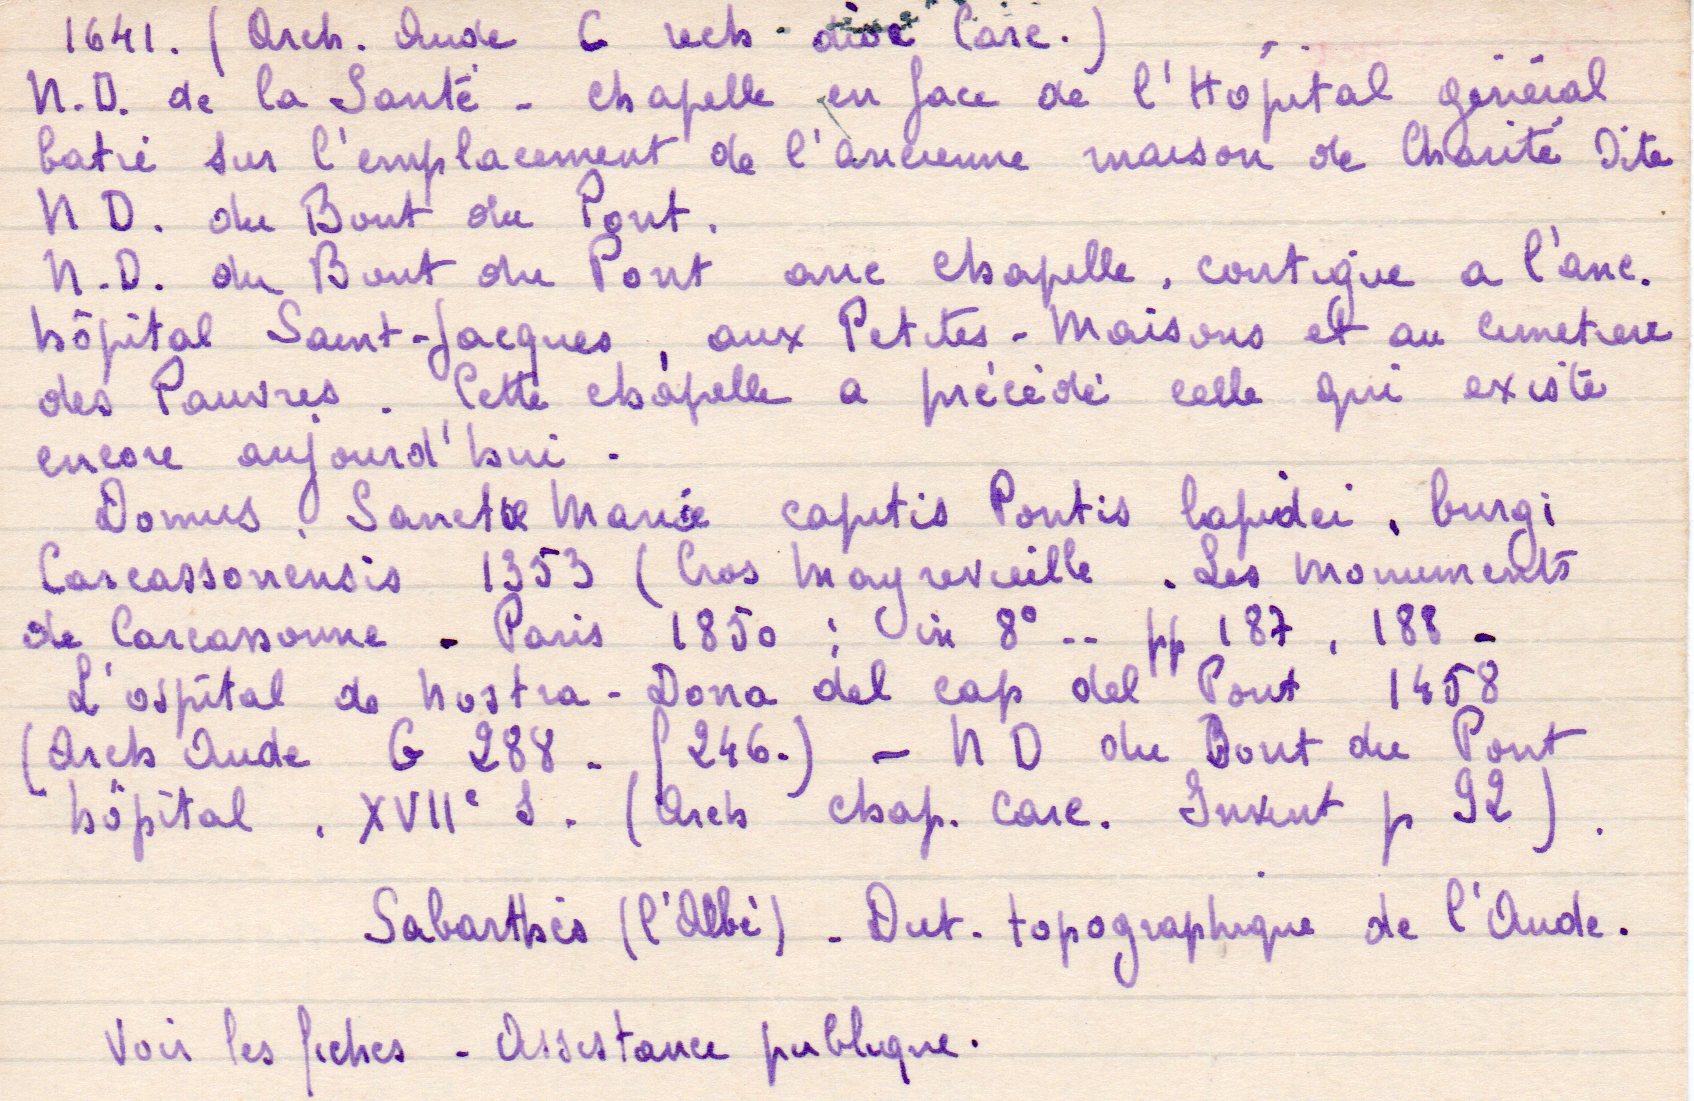 1641. (Arch. Aude C rech. dioc Carc.)
N.D. de la Santé - chapelle en face de l'Hôpital général
batie sur l'emplacement de l'ancienne maison de Charité dite
N D. du Bout du Pont.
N.D. du Bout du Pont anc chapelle, contigue a l'anc.
hôpital Saint-Jacques, aux Petites-Maisons et au cimetiere
des Pauvres. Cette chapelle a précédé celle qui existe
encore aujourd'hui.
Domus Sanctæ Mariæ capitis Pontis lapidei, burgi
Carcassonensis 1353 (Cros Mayrevieille. Les Monuments
de Carcassonne - Paris 1850; in 8° -- pp 187, 188 -
L'ospital de Nostra-Dona del cap del Pont 1458
(Arch Aude G 288 - f 246.) - N D du Bout du Pont
hôpital, XVIIe S. (Arch chap. Carc. Invent p 92).
Sabarthès (l'Abbé) - Dict. topographique de l'Aude.
Voir les fiches - Assistance publique.